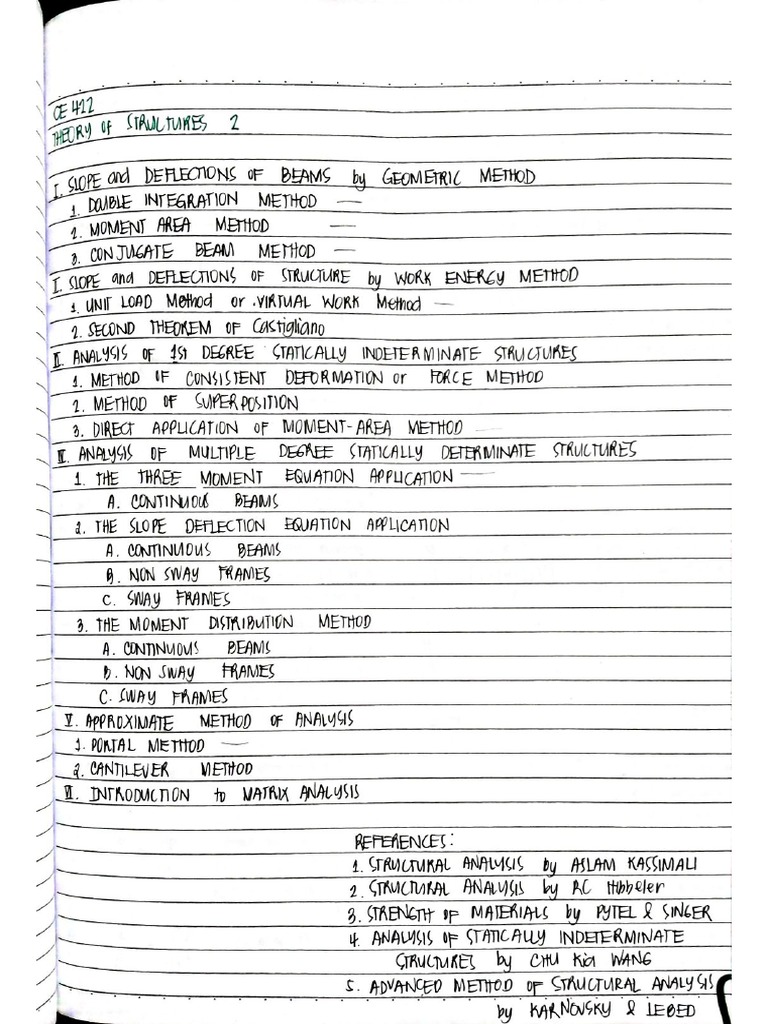 CE 422
THEORY OF STRUCTURES 2
I. SLOPE and DEFLECTIONS OF BEAMS by GEOMETRIC METHOD
1. DOUBLE INTEGRATION METHOD —
2. MOMENT AREA METHOD —
3. CONJUGATE BEAM METHOD —
I. SLOPE and DEFLECTIONS OF STRUCTURE by WORK ENERGY METHOD
1. UNIT LOAD Method or VIRTUAL WORK Method —
2. SECOND THEOREM OF Castigliano
II. ANALYSIS OF 1st DEGREE STATICALLY INDETERMINATE STRUCTURES
1. METHOD OF CONSISTENT DEFORMATION or FORCE METHOD
2. METHOD OF SUPERPOSITION
3. DIRECT APPLICATION OF MOMENT-AREA METHOD —
III. ANALYSIS OF MULTIPLE DEGREE STATICALLY DETERMINATE STRUCTURES
1. THE THREE MOMENT EQUATION APPLICATION —
A. CONTINUOUS BEAMS
2. THE SLOPE DEFLECTION EQUATION APPLICATION
A. CONTINUOUS BEAMS
B. NON SWAY FRAMES
C. SWAY FRAMES
3. THE MOMENT DISTRIBUTION METHOD
A. CONTINUOUS BEAMS
B. NON SWAY FRAMES
C. SWAY FRAMES
V. APPROXIMATE METHOD OF ANALYSIS
1. PORTAL METHOD —
2. CANTILEVER METHOD
VI. INTRODUCTION to MATRIX ANALYSIS
REFERENCES:
1. STRUCTURAL ANALYSIS by ASLAM KASSIMALI
2. STRUCTURAL ANALYSIS by RC Hibbeler
3. STRENGTH OF MATERIALS by PYTEL & SINGER
4. ANALYSIS OF STATICALLY INDETERMINATE
STRUCTURES by CHU KIA WANG
5. ADVANCED METHOD OF STRUCTURAL ANALYSIS
by KARNOVSKY & LEBED